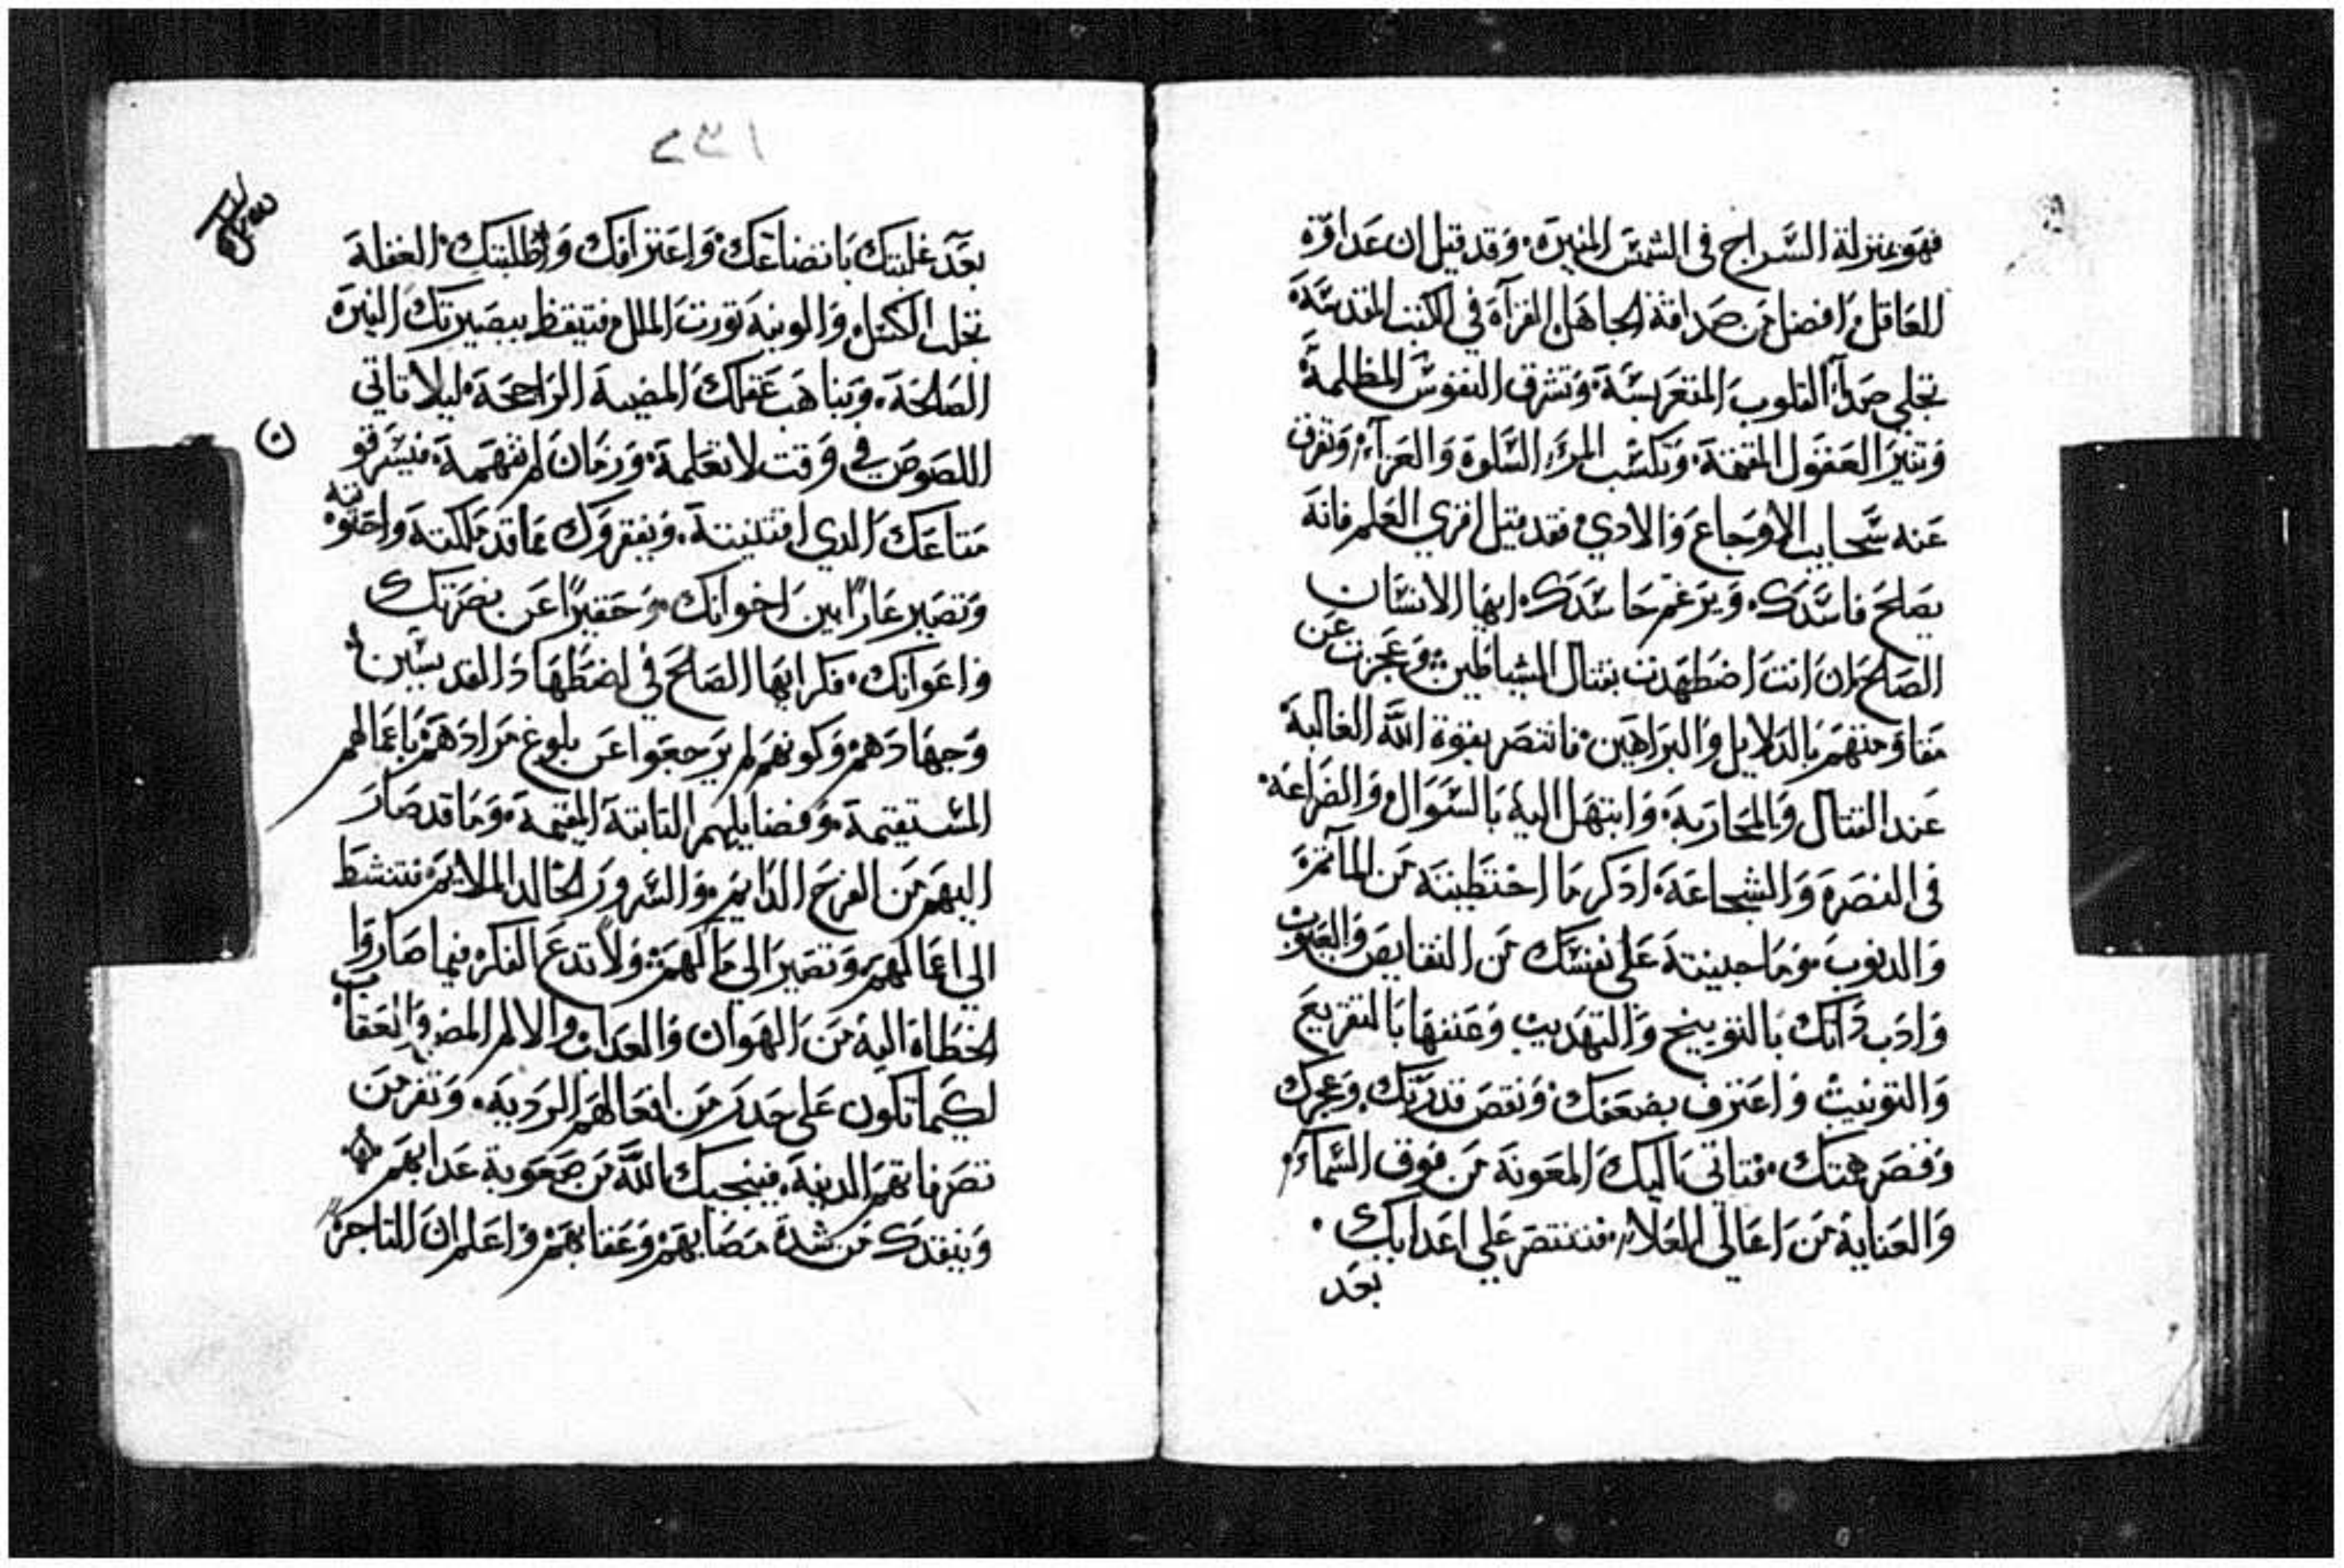 فهو بمنزلة السراج في الشمس المنيرة وقد قيل ان عداوة
العاقل افضل من صداقة الجاهل القرآة في الكتب المقدسة
تجلي صدآ القلوب وتشرق النفوس المظلمة
وتنير العقول وتكسب المرء السلوة والعزآء وتفرق
عنه سحايب الاوجاع والادي فقد قيل اقري العلم فانه
يصلح فاسدك ويرغم حاسدك ايها الانسان
الصالح ان انت اضطهدت بقتال الشياطين وعجزت عن
مقاومتهم بالدلايل والبراهين فانتصر بقوة الله الغالبة
عند القتال والمحاربة وابتهل اليه بالسوال والضراعة
في النصرة والشجاعة ادكر ما احتظيته من المآثم
والدنوب وما جنيته علي نفسك من النقايص والعيوب
وادب داتك بالتوبيخ والتهديب وعنفها بالتقريع
والتونيب واعترف بضعفك ونقص قدرتك وعجزك
وقصر همتك فتاتي اليك المعونة من فوق السماء
والعناية من اعالي العلاء فتنتصر علي اعدايك
بعد
١٣٢
بعد غلبتك باتضاعك واعترافك وطلبتك الغفلة
تجلب الكسل والونية تورت الملل فتيقظ ببصيرتك النيرة
الصالحة وتناهب عقلك المضية الراجحة ليلا تاتي
اللصوص في وقت لا تعلمة وزمان لم تفهمة فيسرقو
متاعك الدي اقتنيتة ويفقروك مما قد ملكتة واحتويته
وتصير عارًا بين اخوانك وحقيرًا عن نصرتك
واعوانك فكر ايها الصالح في اضطهاد القديسين
وجهادهم وكونهم لم يرجعوا عن بلوغ مرادهم باعمالهم
المستقيمة وفضايلهم التابتة المقيمة وما قد صار
اليهم من الفرح الدايم والسرور الخالد الملايم فتنشط
الي اعمالهم وتصير الي مالهم ولا تدع الفكر فيما صاروا
الخطاة اليه من الهوان والعداب والالم المضر والعقاب
لكيما تكون علي حدر من افعالهم الردية وتفر من
تصرفاتهم الدنية فينجيك الله من صعوبة عدابهم
وينقدك من شدة مصايهم وعقابهم واعلم ان التاجر